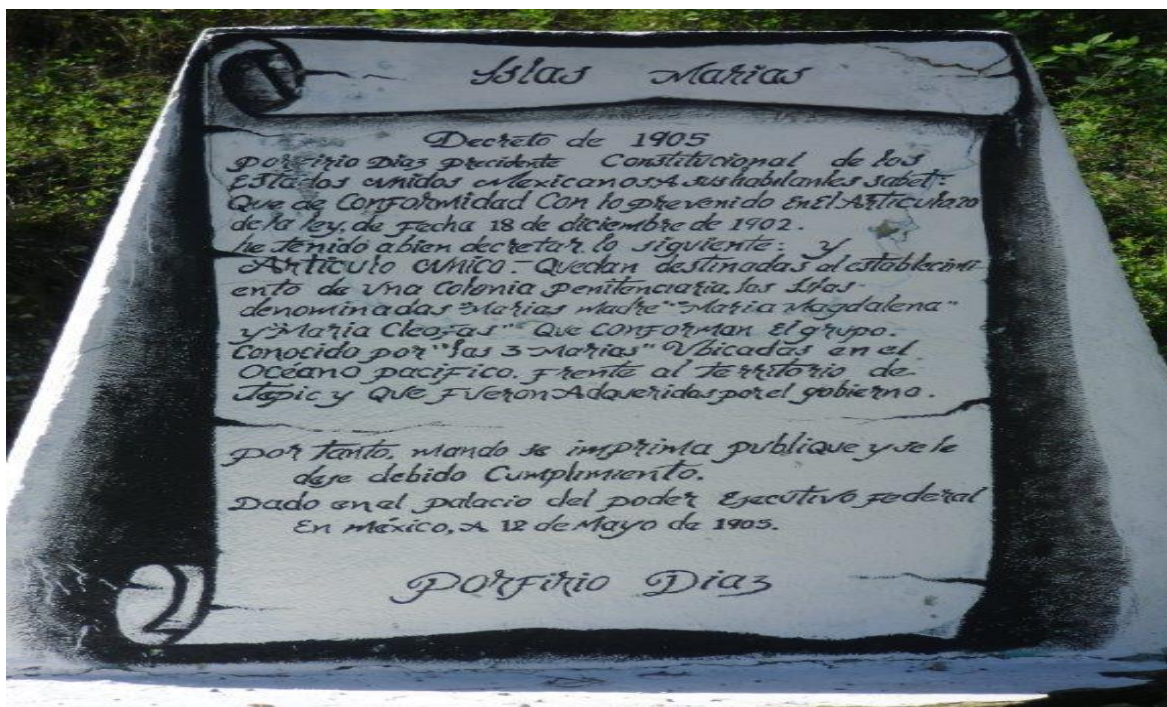 Islas Marias
Decreto de 1905
Porfirio Diaz Precidente Constitucional de los
Estados Unidos Mexicanos A sus habitantes sabet:
Que de Conformidad Con lo prevenido En El Articulo 20
de la ley, de Fecha 18 de diciembre de 1902.
he Tenido a bien decretar lo siguiente: y
Articulo Unico.- Quedan destinadas al establecimi-
ento de Una Colonia Penitenciaria, las Islas
denominadas "Marias Madre" "Maria Magdalena"
y "Maria Cleofas" Que Conforman El grupo.
Conocido por "las 3 Marias" Ubicadas en el
Océano pacifico. Frente al Territorio de
Tepic y Que Fueron Adqueridas por el gobierno.
Por Tanto, mando se imprima publique y se le
dese debido Cumplimiento.
Dado en el palacio del poder Ejecutivo Federal
En méxico, A 12 de Mayo de 1905.
Porfirio Diaz